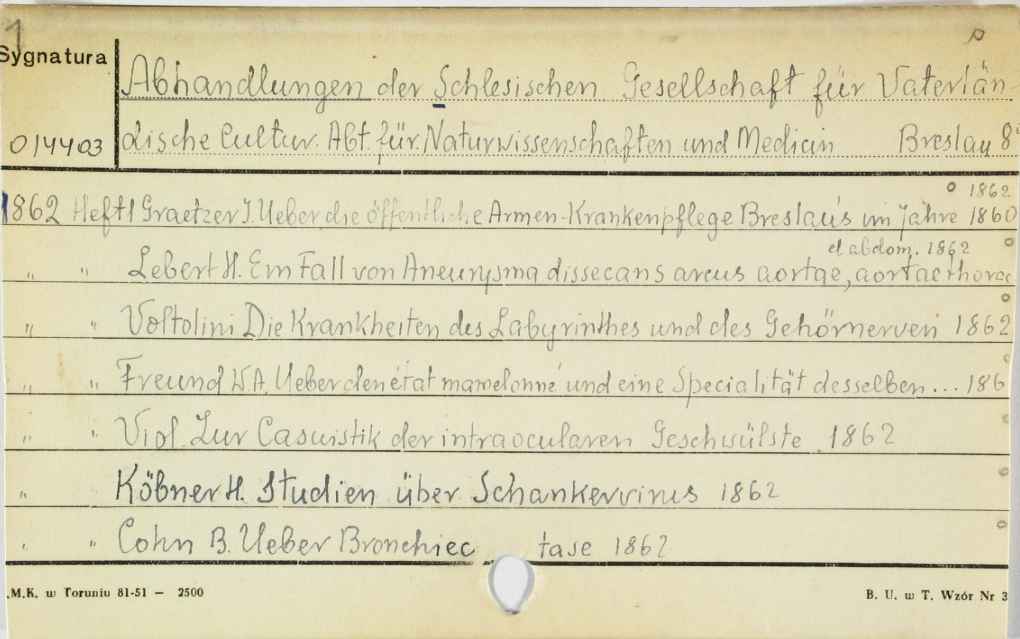 1
Sygnatura
Abhandlungen der Schlesischen Gesellschaft für Vaterlän-
014403 dische Cultur. Abt. für Naturwissenschaften und Medicin Breslau 8°
1862
1862 Heft 1 Graetzer J. Ueber die öffentliche Armen-Krankenpflege Breslaus im Jahre 1860
et abdom. 1862
„ „ Lebert H. Ein Fall von Aneurysma dissecans arcus aortae, aortae thorac
„ „ Voltolini Die Krankheiten des Labyrinthes und des Gehörnerven 1862
„ „ Freund W.A. Ueber den état mamelonné und eine Specialität desselben... 186
„ „ Viol Zur Casuistik der intraocularen Geschwülste 1862
„ Köbner H. Studien über Schankervirus 1862
„ „ Cohn B. Ueber Bronchiec tase 1862
.M.K. w Toruniu 81-51 — 2500
B. U. w T. Wzór Nr 3